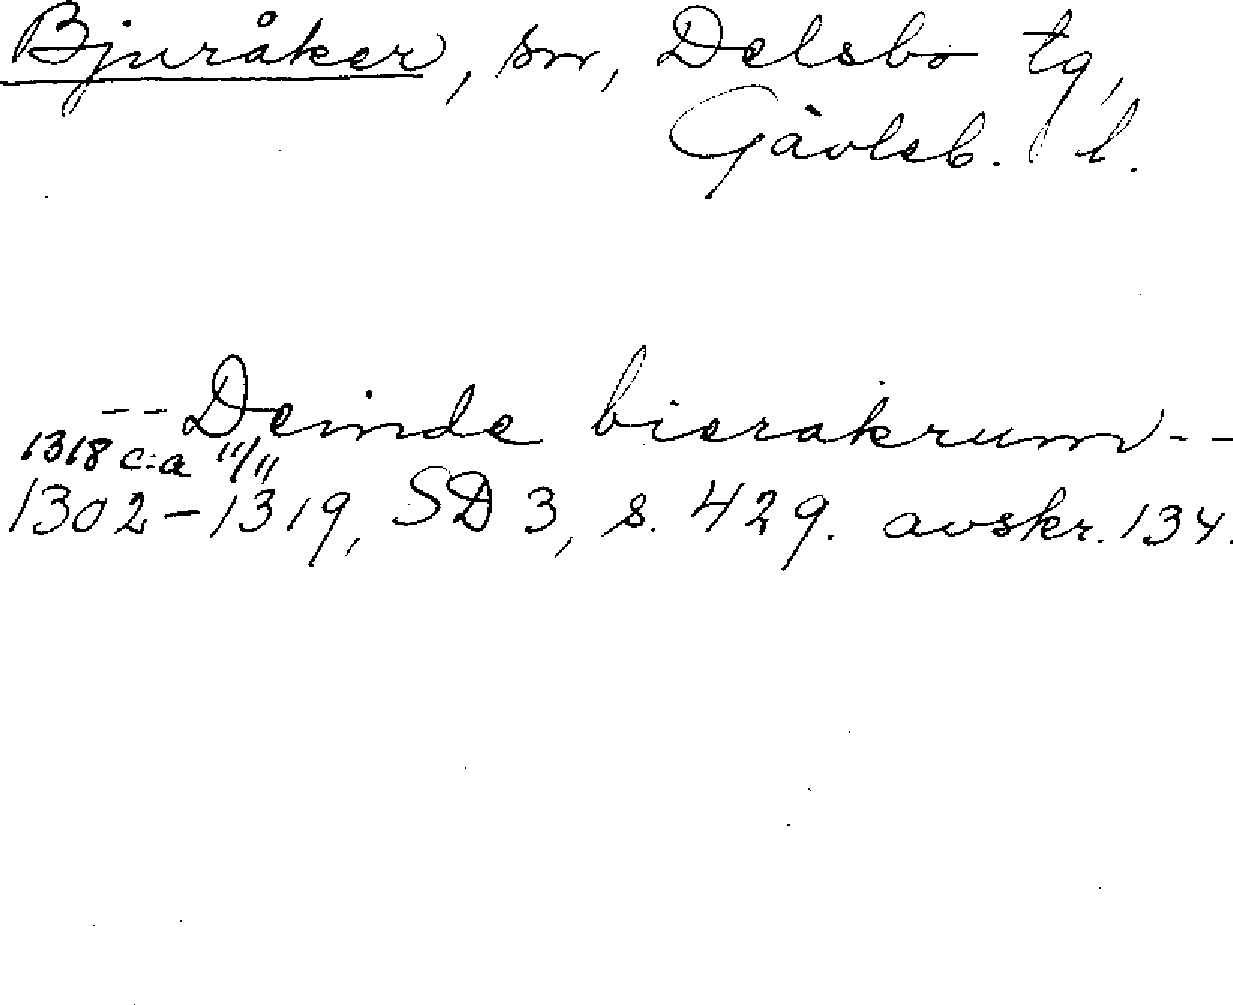 Bjuråker, sn, Delsbo tg,
Gävleb. l.
-- Deinde bierakrum --
1318 c:a 11/11
1302-1319, SD 3, s. 429. avskr. 134.